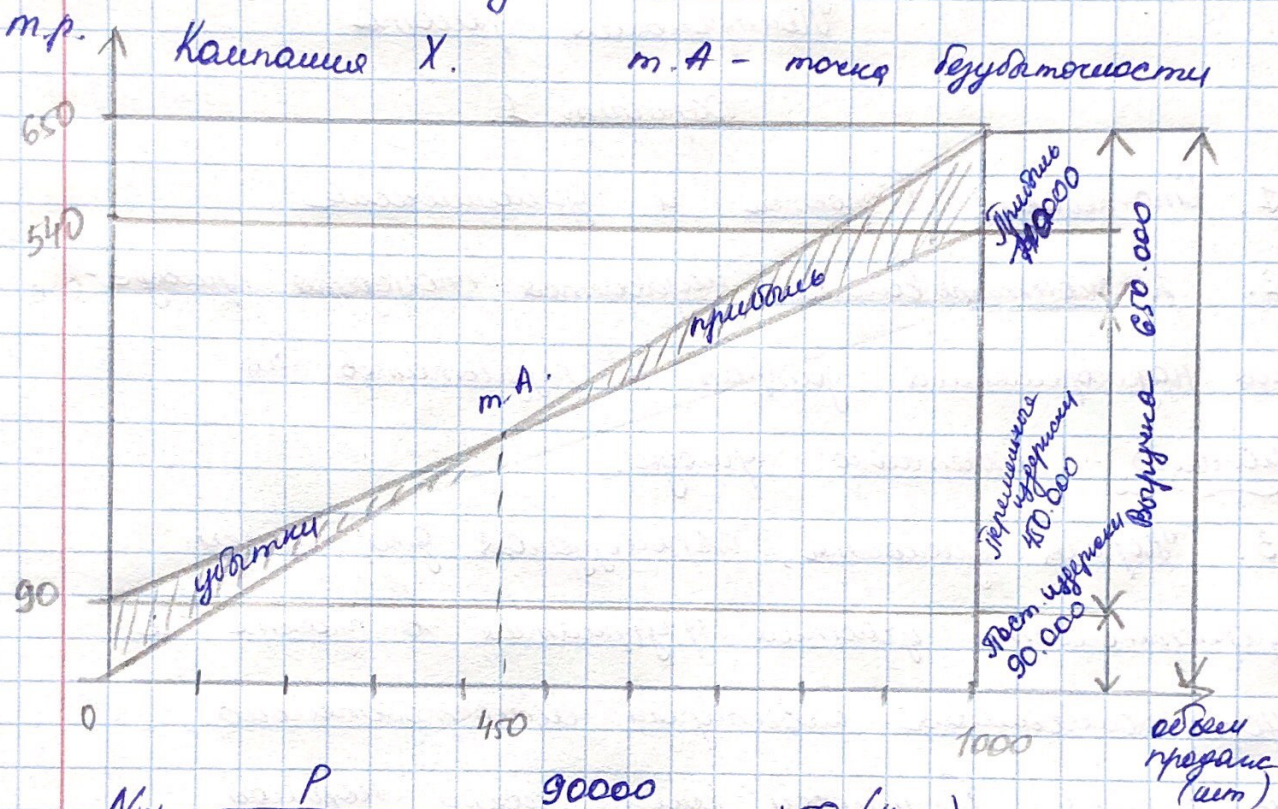 т.р.
Компания X. т.А – точка безубыточности
650
540
90
0
450
1000
объём
продаж
(шт)
убытки
т.А.
прибыль
Прибыль
110000
Переменные
издержки
450.000
Пост. издержки
90.000
Выручка 650.000
P
90000